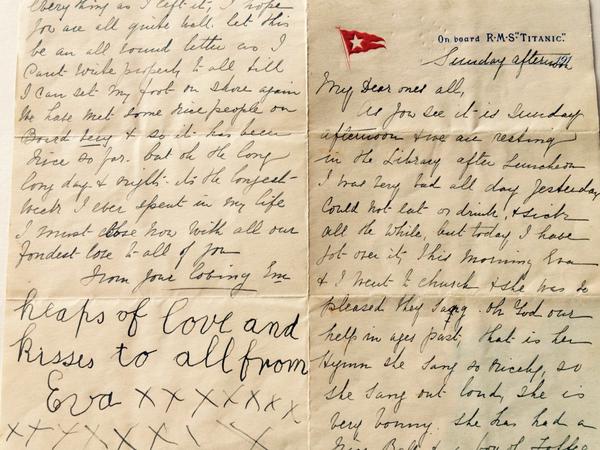 everything as I left it, I hope
you are all quite well. let this
be an all round letter as I
Cant write properly to all till
I can set my foot on shore again
We have met some nice people on
Board Lucy & so it has been
nice so far. but oh the long
long day & nights. its the longest
week I ever spent in my life
I must close now with all our
fondest love to all of you
From your loving Em
heaps of love and
kisses to all from
Eva x x x x x x x
x x x x x x x
On board R.M.S. "TITANIC."
Sunday afternoon 191
My Dear ones all,
As you see it is Sunday
afternoon & we are resting
in the Library after Luncheon
I was very bad all day yesterday
Could not eat or drink, & sick
all the while, but today I have
got over it, This Morning Eva
& I went to church & she was so
pleased they sang. Oh God our
help in ages past, that is her
Hymn she sang so nicely, so
she sang out loud, She is
very bonny. She has had a
nice Ball & a box of Toffee